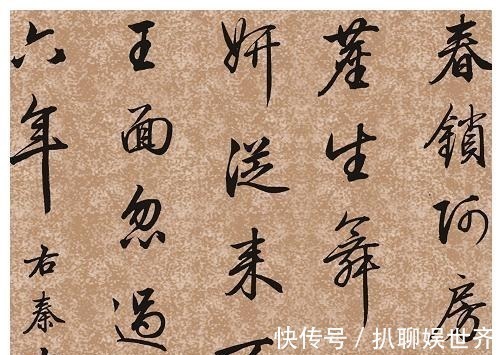 春鎖阿房
塵生舞
妍從来
王面忽過
六年
右秦
快传号 / 扒聊娱世齐